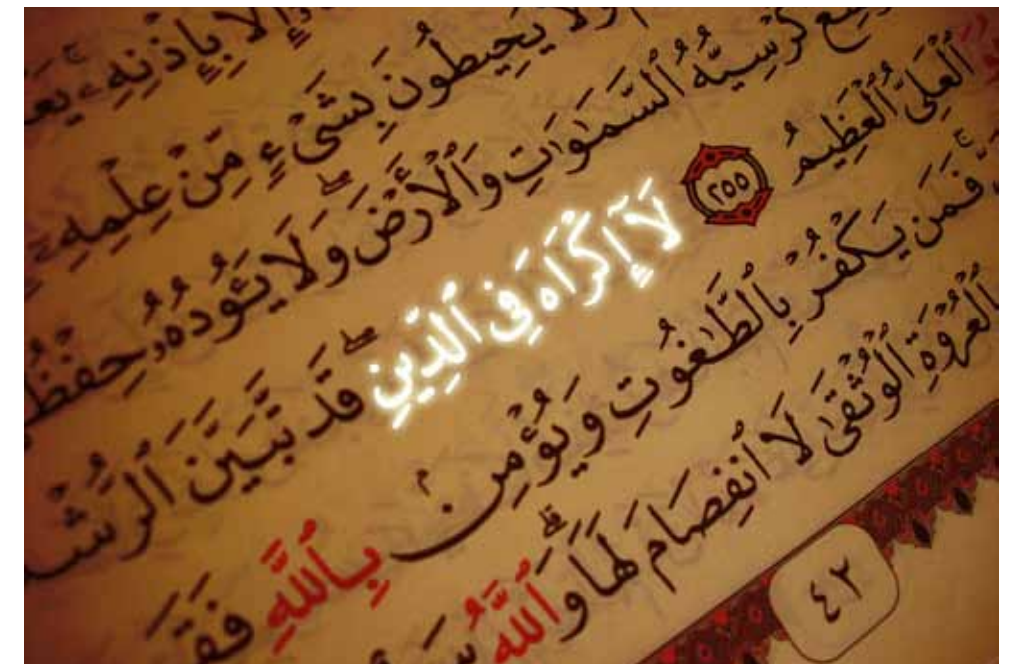 إِلَّا بِإِذْنِهِۦ
وَلَا يُحِيطُونَ بِشَىْءٍ مِّنْ عِلْمِهِۦٓ
كُرْسِيُّهُ ٱلسَّمَٰوَٰتِ وَٱلْأَرْضَ ۖ وَلَا يَـُٔودُهُۥ حِفْظُ
ٱلْعَلِىُّ ٱلْعَظِيمُ ٢٥٥ لَآ إِكْرَاهَ فِى ٱلدِّينِ ۖ قَد تَّبَيَّنَ ٱلرُّشْ
فَمَن يَكْفُرْ بِٱلطَّٰغُوتِ وَيُؤْمِنۢ بِٱللَّهِ فَقَ
ٱلْعُرْوَةِ ٱلْوُثْقَىٰ لَا ٱنفِصَامَ لَهَا ۗ وَٱللَّهُ
٤٢